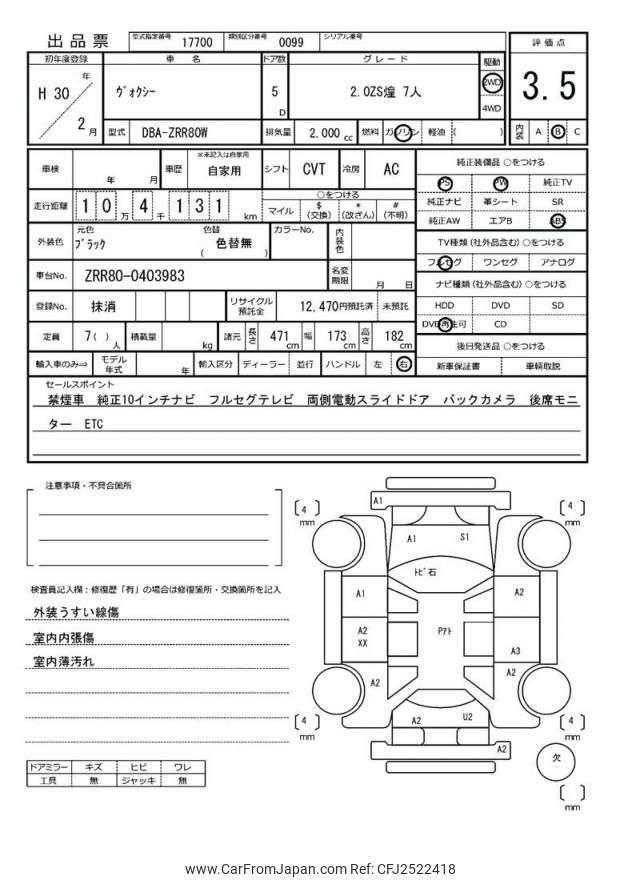 出品票
型式指定番号 17700 類別区分番号 0099 シリアル番号
評価点
3.5
内装 A B C
初年度登録 車名 ドア数 グレード 駆動
H 30 年 2 月
ヴォクシー
5 D
2.0ZS煌 7人
2WD
4WD
型式 DBA-ZRR80W 排気量 2,000 cc 燃料 ガソリン 軽油 ( )
車検 年 月 車歴 ※未記入は自家用 自家用 シフト CVT 冷房 AC
走行距離 10万4千131 km
○をつける
マイル $(交換) *(改ざん) #(不明)
外装色 元色 ブラック 色替 ( 色替無 ) カラーNo. 内装色
車台No. ZRR80-0403983 名変期限 月 日
登録No. 抹消 リサイクル預託金 12,470円預託済 未預託
定員 7( )人 積載量 kg 諸元 長さ 471 cm 幅 173 cm 高さ 182 cm
輸入車のみ⇒ モデル年式 年 輸入区分 ディーラー 並行 ハンドル 左 右
純正装備品 ○をつける
PS PW 純正TV
純正ナビ 革シート SR
純正AW エアB ABS
TV種類(社外品含む)○をつける
フルセグ ワンセグ アナログ
ナビ種類(社外品含む)○をつける
HDD DVD SD
DVD再生可 CD
後日発送品 ○をつける
新車保証書 車輌取説
セールスポイント
禁煙車 純正10インチナビ フルセグテレビ 両側電動スライドドア バックカメラ 後席モニ
ター ETC
注意事項・不具合箇所
検査員記入欄:修復歴「有」の場合は修復箇所・交換箇所を記入
外装うすい線傷
室内内張傷
室内薄汚れ
ドアミラー キズ ヒビ ワレ
工具 無 ジャッキ 無
A1
[ 4 ] mm
[ 4 ] mm
A1 S1
トビ石
A1 A2
A2
XX
Pアト
A3
A2 A2
A2 U2
[ 4 ] mm
[ 4 ] mm
A2
欠
[ ] mm
www.CarFromJapan.com Ref: CFJ2522418